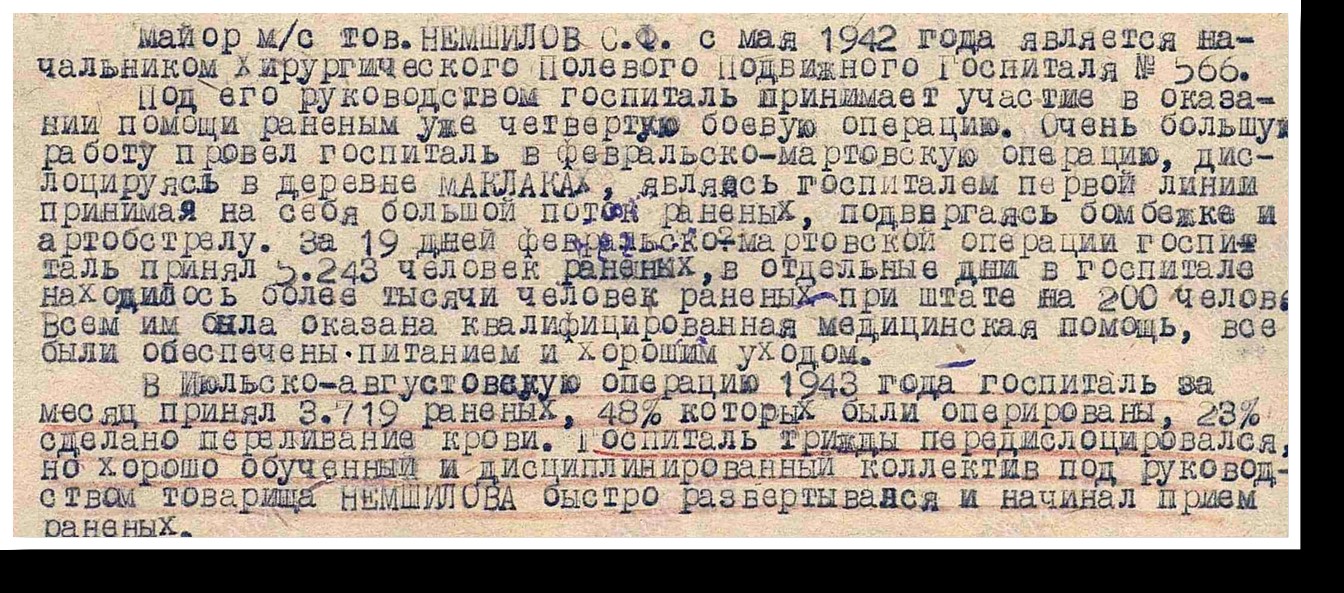 майор м/с тов. НЕМШИЛОВ С.Ф. с мая 1942 года является на-
чальником Хирургического Полевого Подвижного Госпиталя № 566.
Под его руководством госпиталь принимает участие в оказа-
нии помощи раненым уже четвертую боевую операцию. Очень большую
работу провел госпиталь в февральско-мартовскую операцию, дис-
лоцируясь в деревне МАКЛАКАХ, являясь госпиталем первой линии
принимая на себя большой поток раненых, подвергаясь бомбежке и
артобстрелу. За 19 дней февральско-мартовской операции госпит
таль принял 5.243 человек раненых, в отдельные дни в госпитале
находилось более тысячи человек раненых при штате на 200 челов
Всем им была оказана квалифицированная медицинская помощь, все
были обеспечены питанием и хорошим уходом.
В Июльско-августовскую операцию 1943 года госпиталь за
месяц принял 3.719 раненых, 48% которых были оперированы, 23%
сделано переливание крови. Госпиталь трижды передислоцировался,
но хорошо обученный и дисциплинированный коллектив под руковод-
ством товарища НЕМШИЛОВА быстро развертывался и начинал прием
раненых.